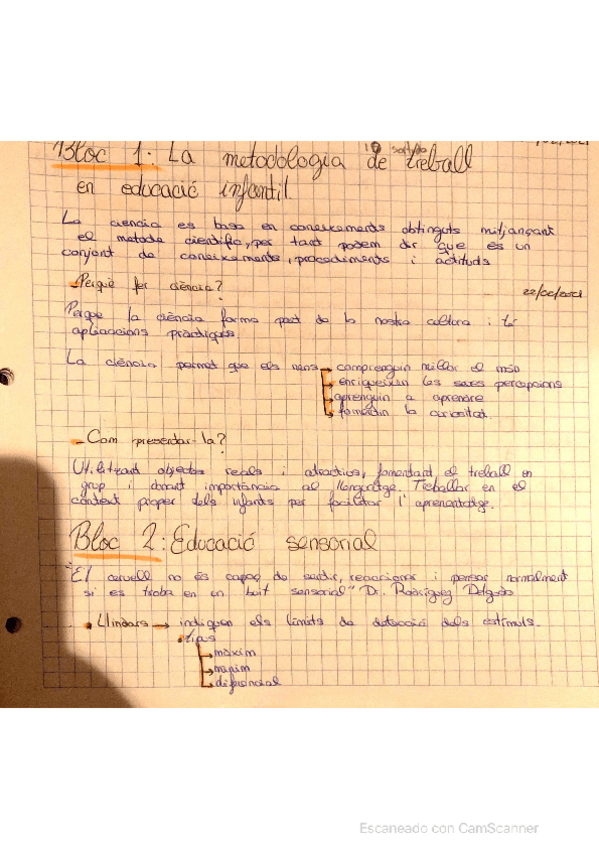 Bloc 1: La metodologia de treball
en educació infantil.
La ciencia es basa en coneixements obtinguts mitjançant
el metode cientific, per tant podem dir que és un
conjunt de coneixements, procediments i actituds
- Perquè fer ciència?
22/02/2021
Perque la ciència forma part de la nostra cultura i té
aplicacions pràctiques
La ciència permet que els nens → comprenguin millor el món
→ enriqueixin les seues percepcions
→ aprenguin a aprendre
→ fomentin la curiositat.
- Com presentar-la?
Utilitzant objectes reals i atractius, fomentant el treball en
grup i donant importància al llenguatge. Treballar en el
context proper dels infants per facilitar l'aprenentatge.
Bloc 2: Educació sensorial
"El cervell no és capaç de sentir, reaccionar i pensar normalment
si es troba en un buit sensorial" Dr. Rodríguez Delgado
• Llindars → indiquen els límits de detecció dels estímuls.
• tipus
→ màxim
→ mínim
→ diferencial
Escaneado con CamScanner